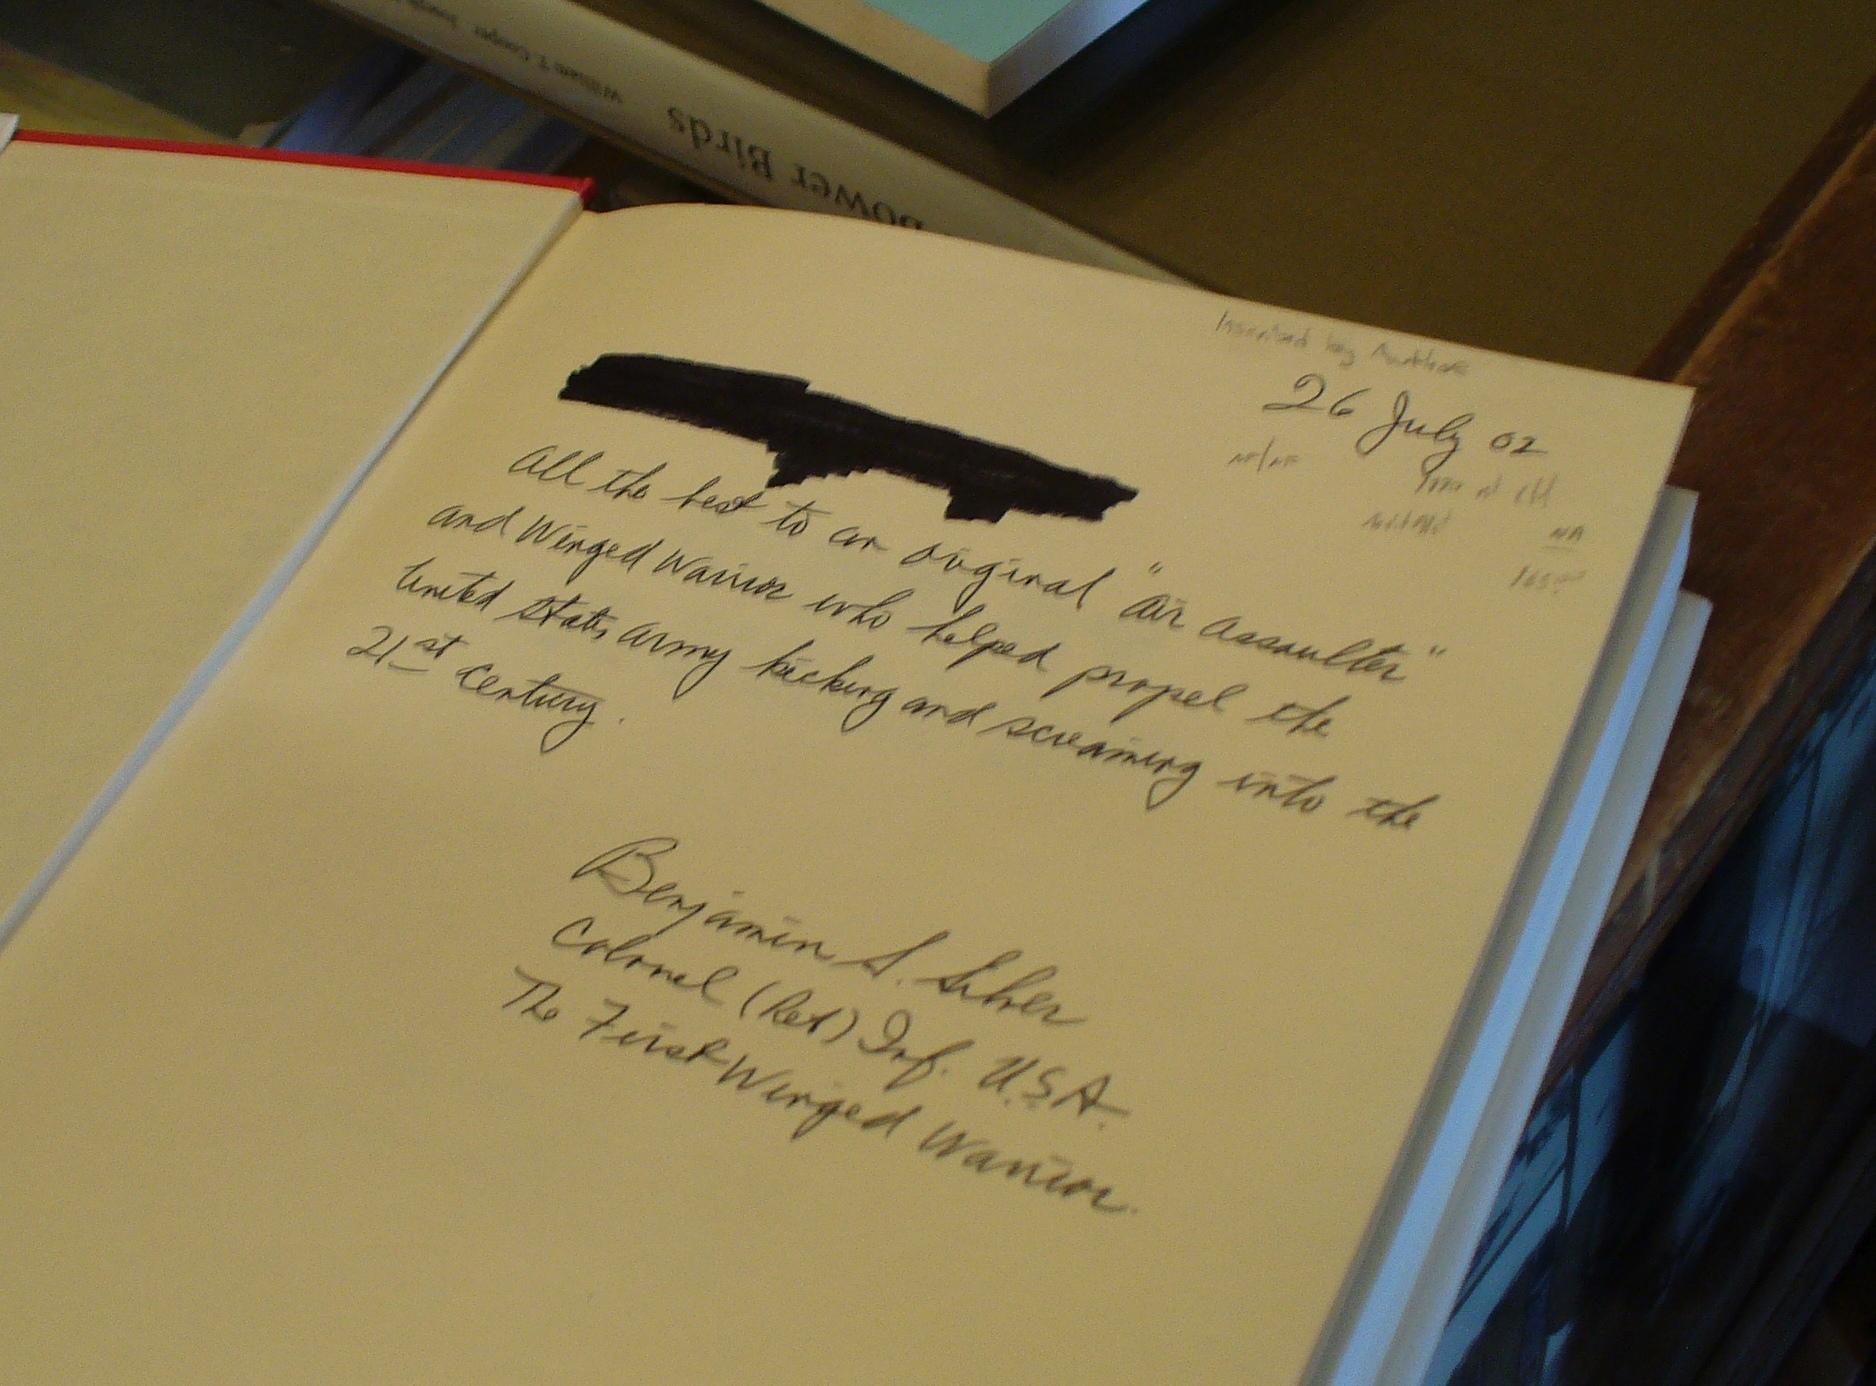 William T. Cooper
Bower Birds
Inscribed by Author
26 July 02
NF/NF
All the best to an original "air assaulter"
and Winged Warrior who helped propel the
United States Army kicking and screaming into the
21st Century.
Benjamin S. Silver
Colonel (Ret) Inf. U.S.A.
The First Winged Warrior.